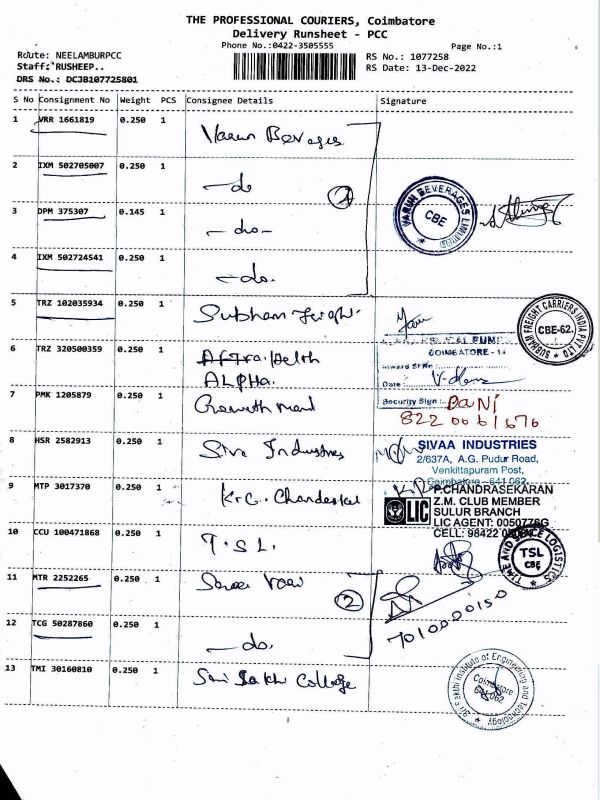 THE PROFESSIONAL COURIERS, Coimbatore
Delivery Runsheet - PCC
Phone No.:0422-3505555
Page No.:1
Route: NEELAMBURPCC
RS No.: 1077258
Staff: RUSHEEP..
RS Date: 13-Dec-2022
DRS No.: DCJB107725801
S No Consignment No Weight PCS Consignee Details Signature
1 VRR 1661819 0.250 1 Varun Beverages
2 IXM 502705007 0.250 1 -do
3 DPM 375307 0.145 1 -do-
VARUN BEVERAGES LIMITED
CBE
4 IXM 502724541 0.250 1 -do.
5 TRZ 102035934 0.250 1 Subham
SUBHAM FREIGHT CARRIERS INDIA PVT LTD
CBE-62.
6 TRZ 320500359 0.250 1
ALPHA.
COIMBATORE - 14
Inward Sr No :
Date :
7 PMK 1205879 0.250 1
Security Sign :
8220061676
8 HSR 2582913 0.250 1 Siva Industries
SIVAA INDUSTRIES
2/637A, A.G. Pudur Road,
Venkittapuram Post,
Coimbatore - 641 062.
9 MTP 3017370 0.250 1 K.G.
P.CHANDRASEKARAN
Z.M. CLUB MEMBER
SULUR BRANCH
LIC
LIC AGENT: 0050776G
CELL: 98422
10 CCU 100471868 0.250 1 T.S.L.
TIME AND SPACE LOGISTICS
TSL
CBE
11 MTR 2252265 0.250 1
2
7010000150
12 TCG 50287860 0.250 1 -do.
13 TMI 30160810 0.250 1 Sri Sakthi College
Sri Sakthi Institute of Engineering and Technology
Coimbatore
641 062